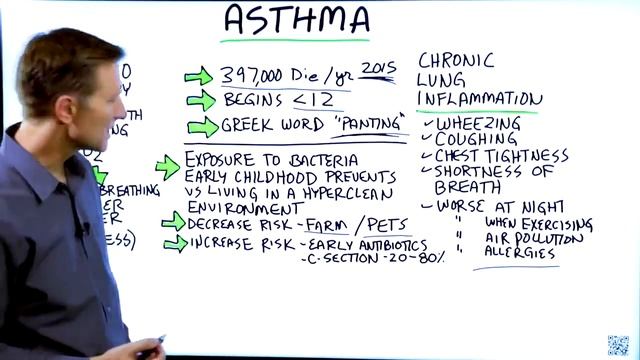 ASTHMA
397,000 Die/yr 2015
BEGINS <12
GREEK WORD "PANTING"
EXPOSURE TO BACTERIA
EARLY CHILDHOOD PREVENTS
VS LIVING IN A HYPERCLEAN
ENVIRONMENT
DECREASE RISK - FARM / PETS
INCREASE RISK - EARLY ANTIBIOTICS
- C-SECTION - 20-80%
CHRONIC
LUNG
INFLAMMATION
WHEEZING
COUGHING
CHEST TIGHTNESS
SHORTNESS OF
BREATH
WORSE AT NIGHT
" WHEN EXERCISING
" AIR POLLUTION
" ALLERGIES
BREATHING